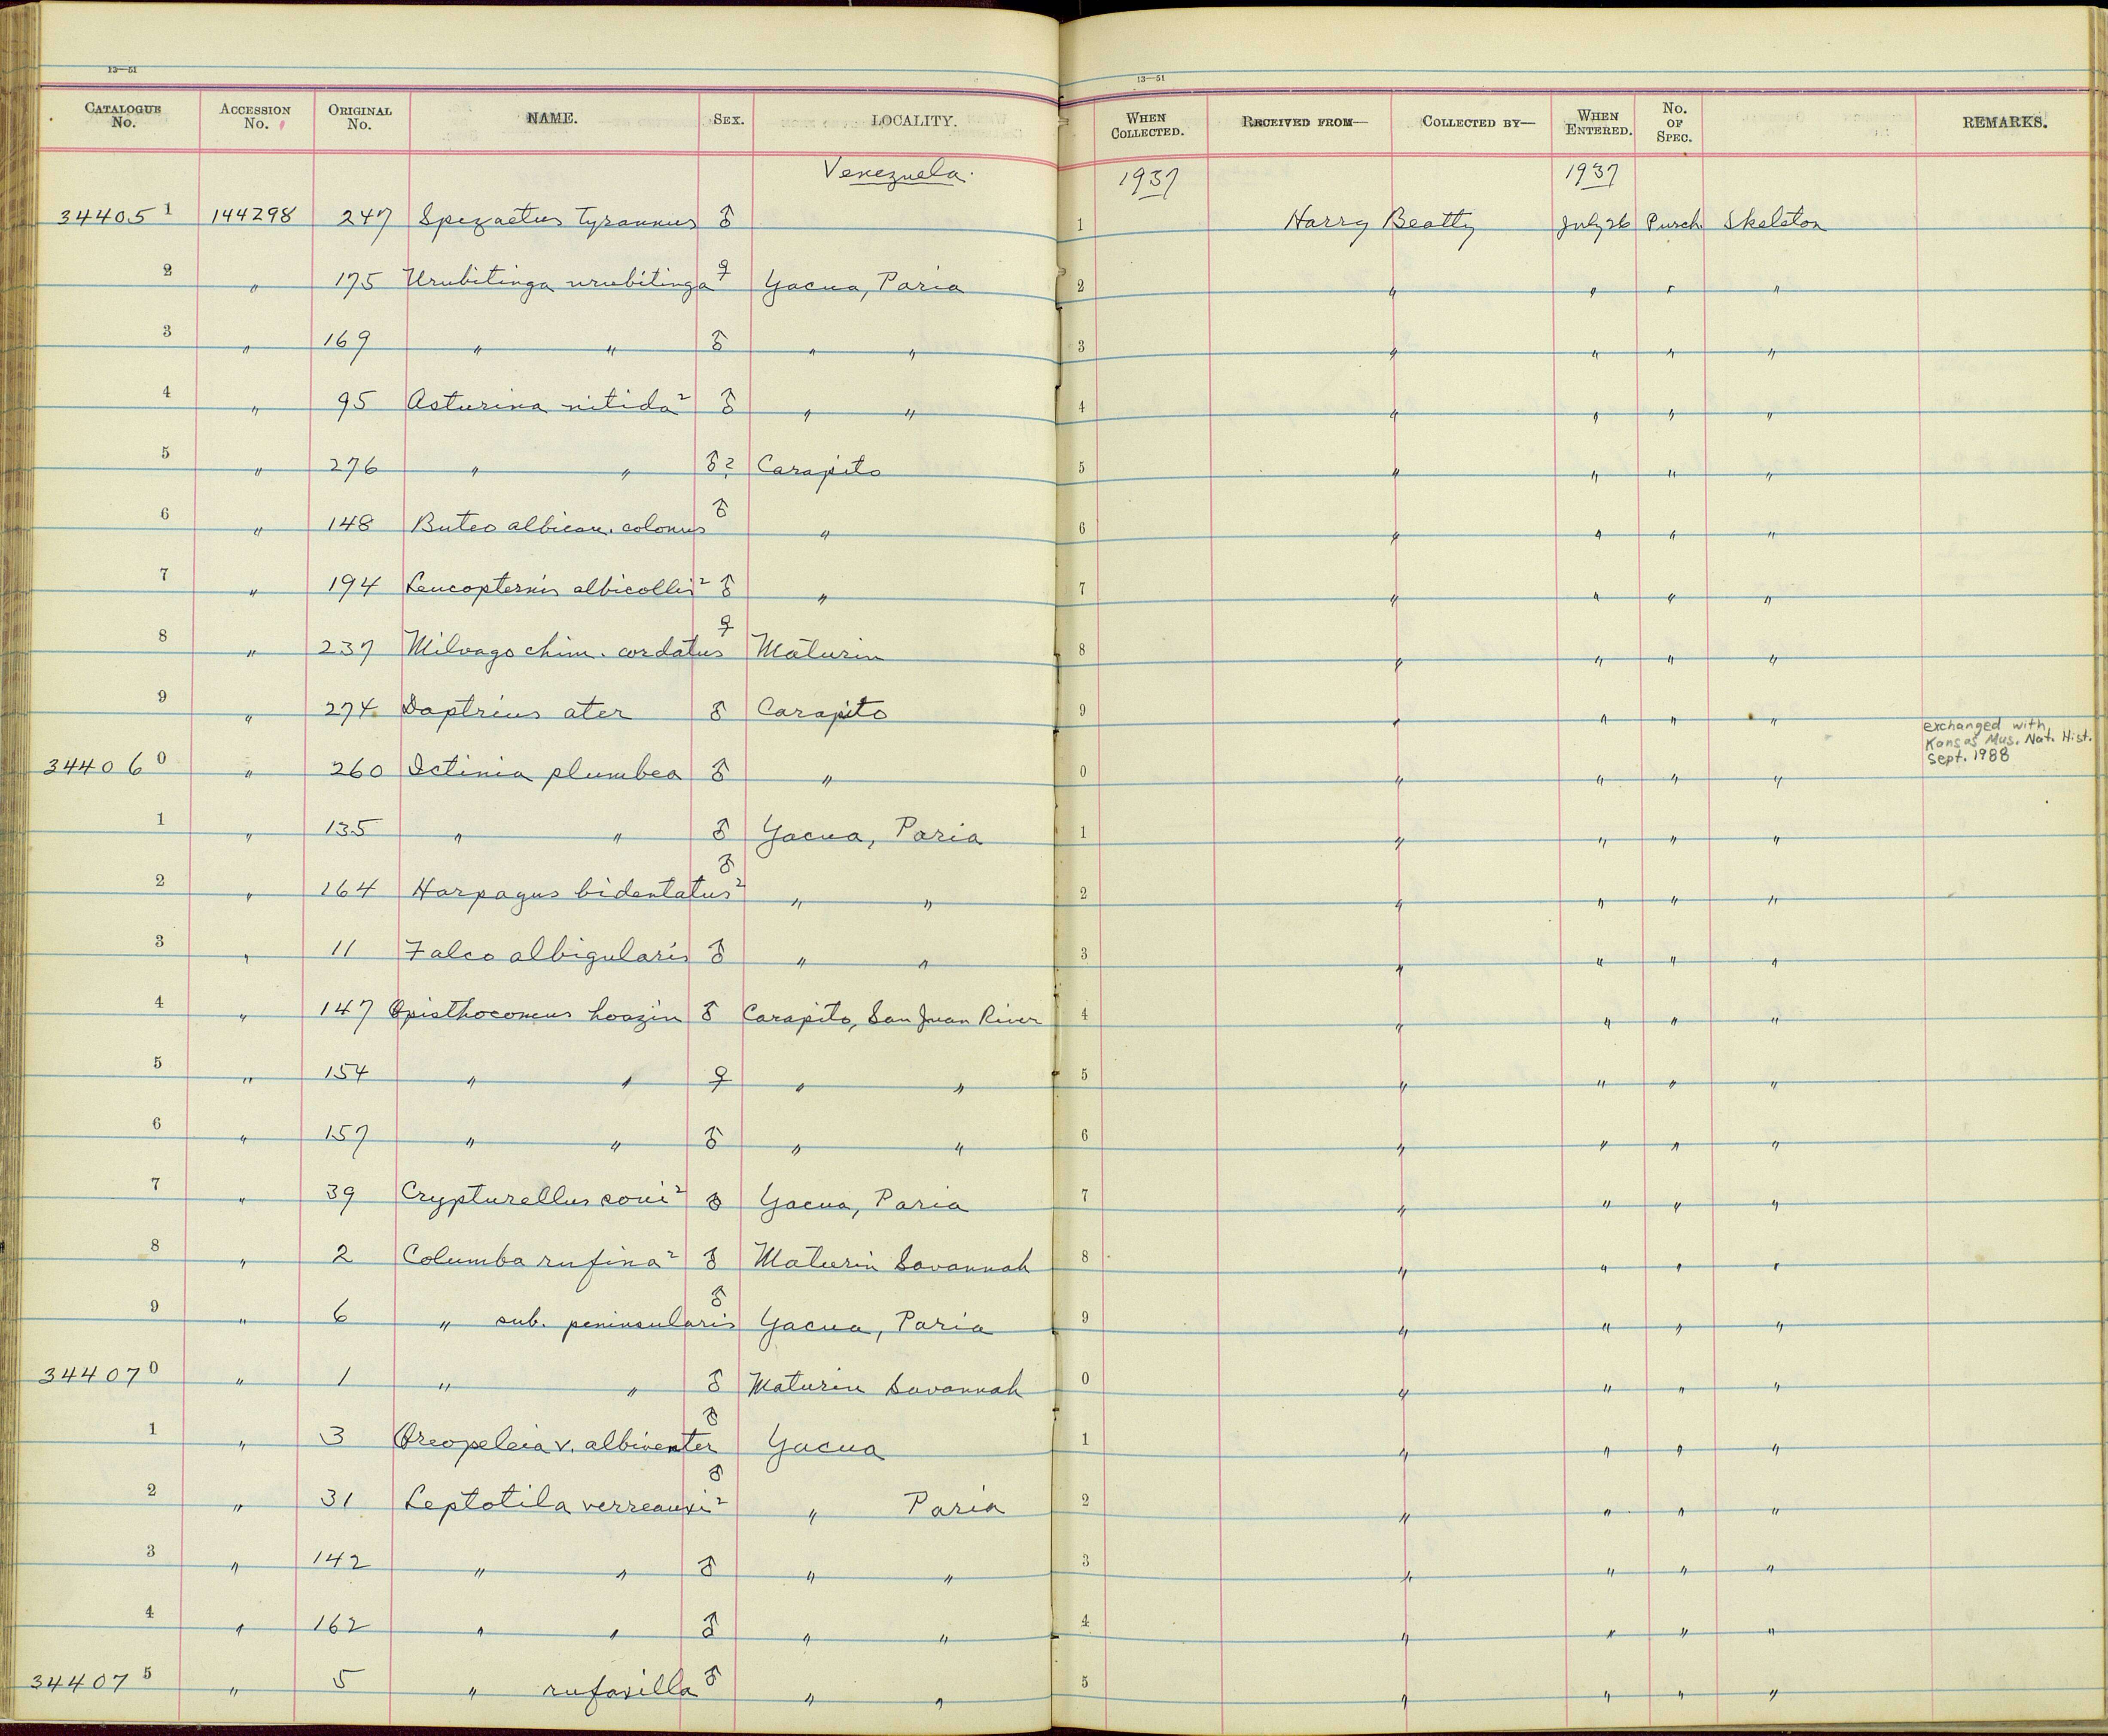 13—51
13—51
CATALOGUE No. ACCESSION No. ORIGINAL No. NAME. SEX. LOCALITY. WHEN COLLECTED. RECEIVED FROM— COLLECTED BY— WHEN ENTERED. No. OF SPEC. REMARKS.
Venezuela. 1937 1937
34405 1 144298 247 Spizaetus tyrannus ♂ 1 Harry Beatty July 26 Purch. Skeleton
2 " 175 Urubitinga urubitinga ♀ Yacua, Paria 2 " " " "
3 " 169 " " ♂ " " 3 " " " "
4 " 95 Asturina nitida² ♂ " " 4 " " " "
5 " 276 " " ♂? Carapito 5 " " " "
6 " 148 Buteo albicau. colonus ♂ " 6 " " " "
7 " 194 Leucopternis albicollis² ♂ " 7 " " " "
8 " 237 Milvago chim. cordatus ♀ Maturin 8 " " " "
9 " 274 Daptrius ater ♂ Carapito 9 " " " "
34406 0 " 260 Ictinia plumbea ♂ " 0 " " " " exchanged with
Kansas Mus. Nat. Hist.
Sept. 1988
1 " 135 " " ♂ Yacua, Paria 1 " " " "
2 " 164 Harpagus bidentatus² ♂ " " 2 " " " "
3 " 11 Falco albigularis ♂ " " 3 " " " "
4 " 147 Opisthocomus hoazin ♂ Carapito, San Juan River 4 " " " "
5 " 154 " " ♀ " " 5 " " " "
6 " 157 " " ♂ " " 6 " " " "
7 " 39 Crypturellus soui² ♂ Yacua, Paria 7 " " " "
8 " 2 Columba rufina² ♂ Maturin Savannah 8 " " " "
9 " 6 " sub. peninsularis ♂ Yacua, Paria 9 " " " "
34407 0 " 1 " " ♂ Maturin Savannah 0 " " " "
1 " 3 Oreopeleia v. albiventer ♂ Yacua 1 " " " "
2 " 31 Leptotila verreauxi² ♂ " Paria 2 " " " "
3 " 142 " " ♂ " " 3 " " " "
4 " 162 " " ♂ " " 4 " " " "
34407 5 " 5 " rufaxilla ♂ " " 5 " " " "